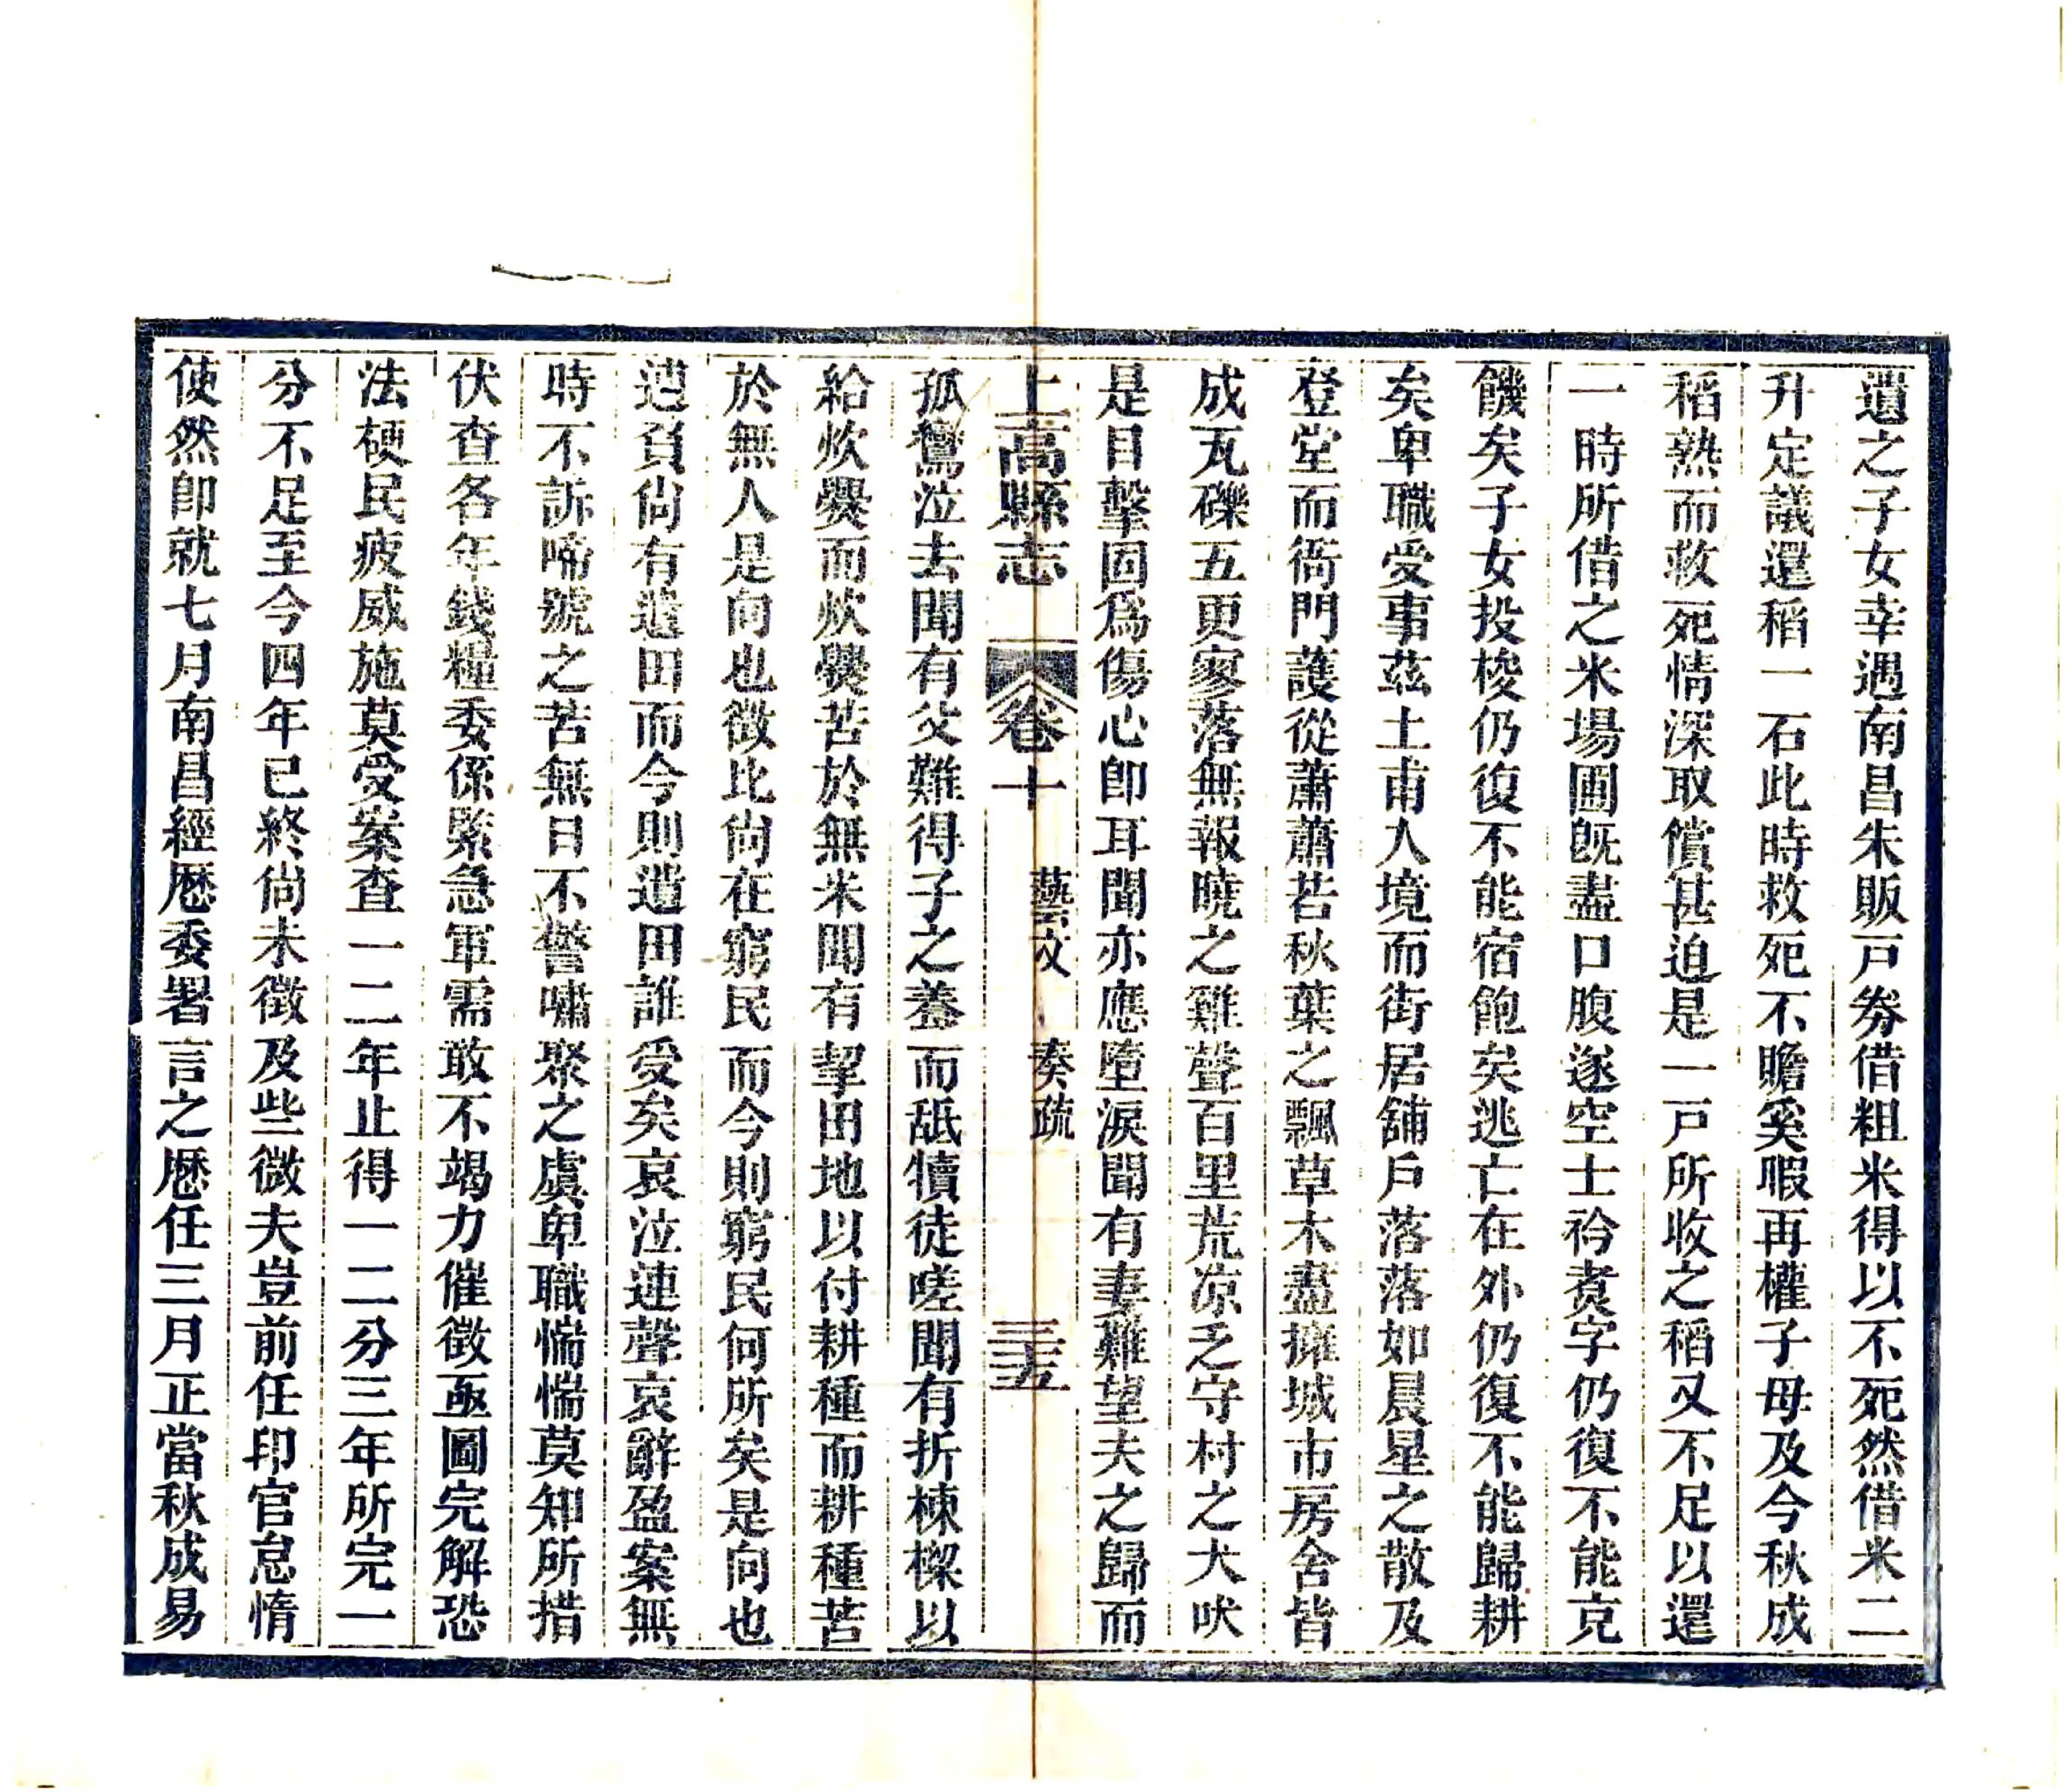 遺之子女幸遇南昌朱販戸劵借粗米得以不死然借米二
升定議還稻一石此時救死不贍奚暇再權子母及今秋成
稻熟而救死情深取償甚迫是一戸所收之稻又不足以還
一時所借之米場圃旣盡口腹遂空士衿煑字仍復不能克
饑矣子女投梭仍復不能宿飽矣逃亡在外仍復不能歸耕
矣卑職受事茲土甫人境而街居舖戶落落如晨星之散及
登堂而衙門護從蕭蕭若秋葉之飄草木盡擁城市房舍皆
成瓦礫五更寥落無報曉之雞聲百里荒凉乏守村之犬吠
是目擊固爲傷心卽耳聞亦應墮淚聞有妻難望夫之歸而
上高縣志 卷十 藝文 奏疏 三五
孤鸞泣去聞有父難得子之養而舐犢徒嗟聞有折棟榱以
給炊爨而炊爨苦於無米聞有挈田地以付耕種而耕種苦
於無人是向也徵比尙在窮民而今則窮民何所矣是向也
逋負尙有遺田而今則遺田誰受矣哀泣連聲哀辭盈案無
時不訴啼號之苦無日不警嘯聚之虞卑職惴惴莫知所措
伏查各年錢糧委係緊急軍需敢不竭力催徵亟圖完解恐
法梗民疲威施莫受案查一二年止得一二分三年所完一
分不足至今四年已終尙未徵及些微夫豈前任印官怠惰
使然卽就七月南昌經厯委署言之厯任三月正當秋成易